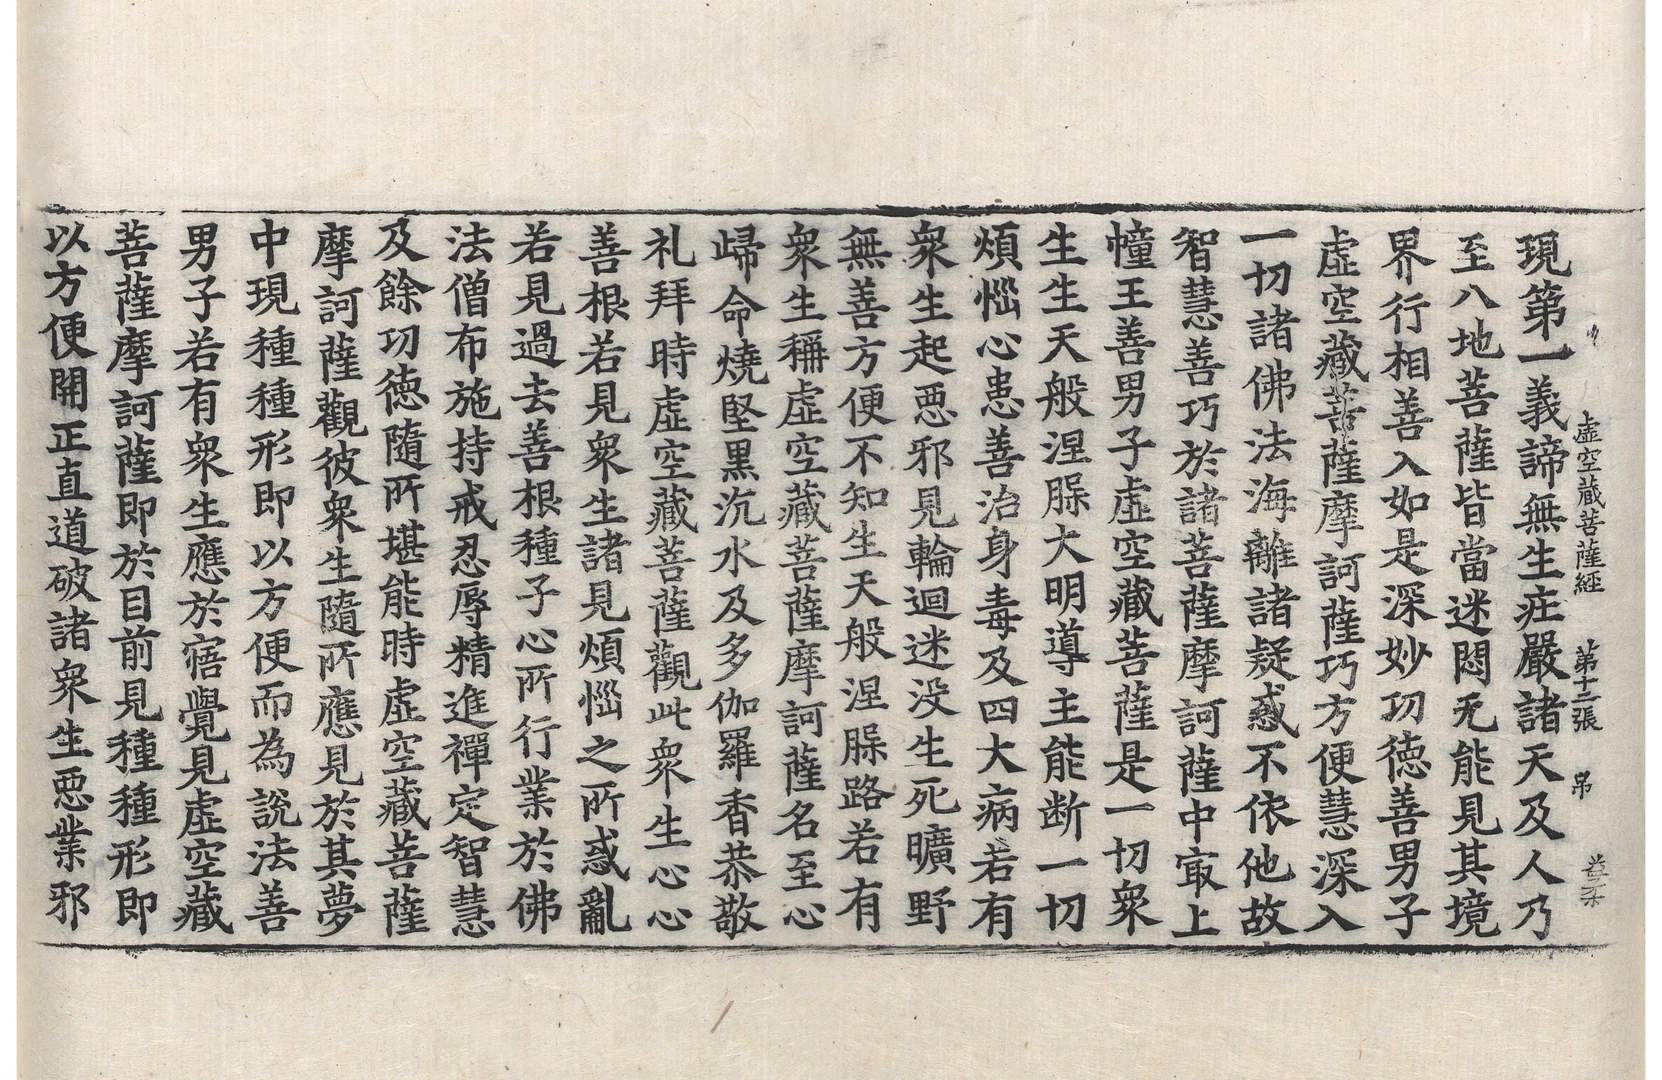 虛空藏菩薩經　第十二張　吊
現第一義諦無生庄嚴諸天及人乃
至八地菩薩皆當迷悶无能見其境
界行相善入如是深妙功德善男子
虛空藏菩薩摩訶薩巧方便慧深入
一切諸佛法海離諸疑惑不依他故
智慧善巧於諸菩薩摩訶薩中㝡上
幢王善男子虛空藏菩薩是一切衆
生生天般涅槃大明導主能断一切
煩惱心患善治身毒及四大病若有
衆生起惡邪見輪迴迷没生死曠野
無善方便不知生天般涅槃路若有
衆生稱虛空藏菩薩摩訶薩名至心
歸命燒堅黒沉水及多伽羅香恭敬
礼拜時虛空藏菩薩觀此衆生心心
善根若見衆生諸見煩惱之所惑亂
若見過去善根種子心所行業於佛
法僧布施持戒忍辱精進禪定智慧
及餘功德隨所堪能時虛空藏菩薩
摩訶薩觀彼衆生隨所應見於其夢
中現種種形即以方便而為說法善
男子若有衆生應於寤覺見虛空藏
菩薩摩訶薩即於目前見種種形即
以方便開正直道破諸衆生惡業邪